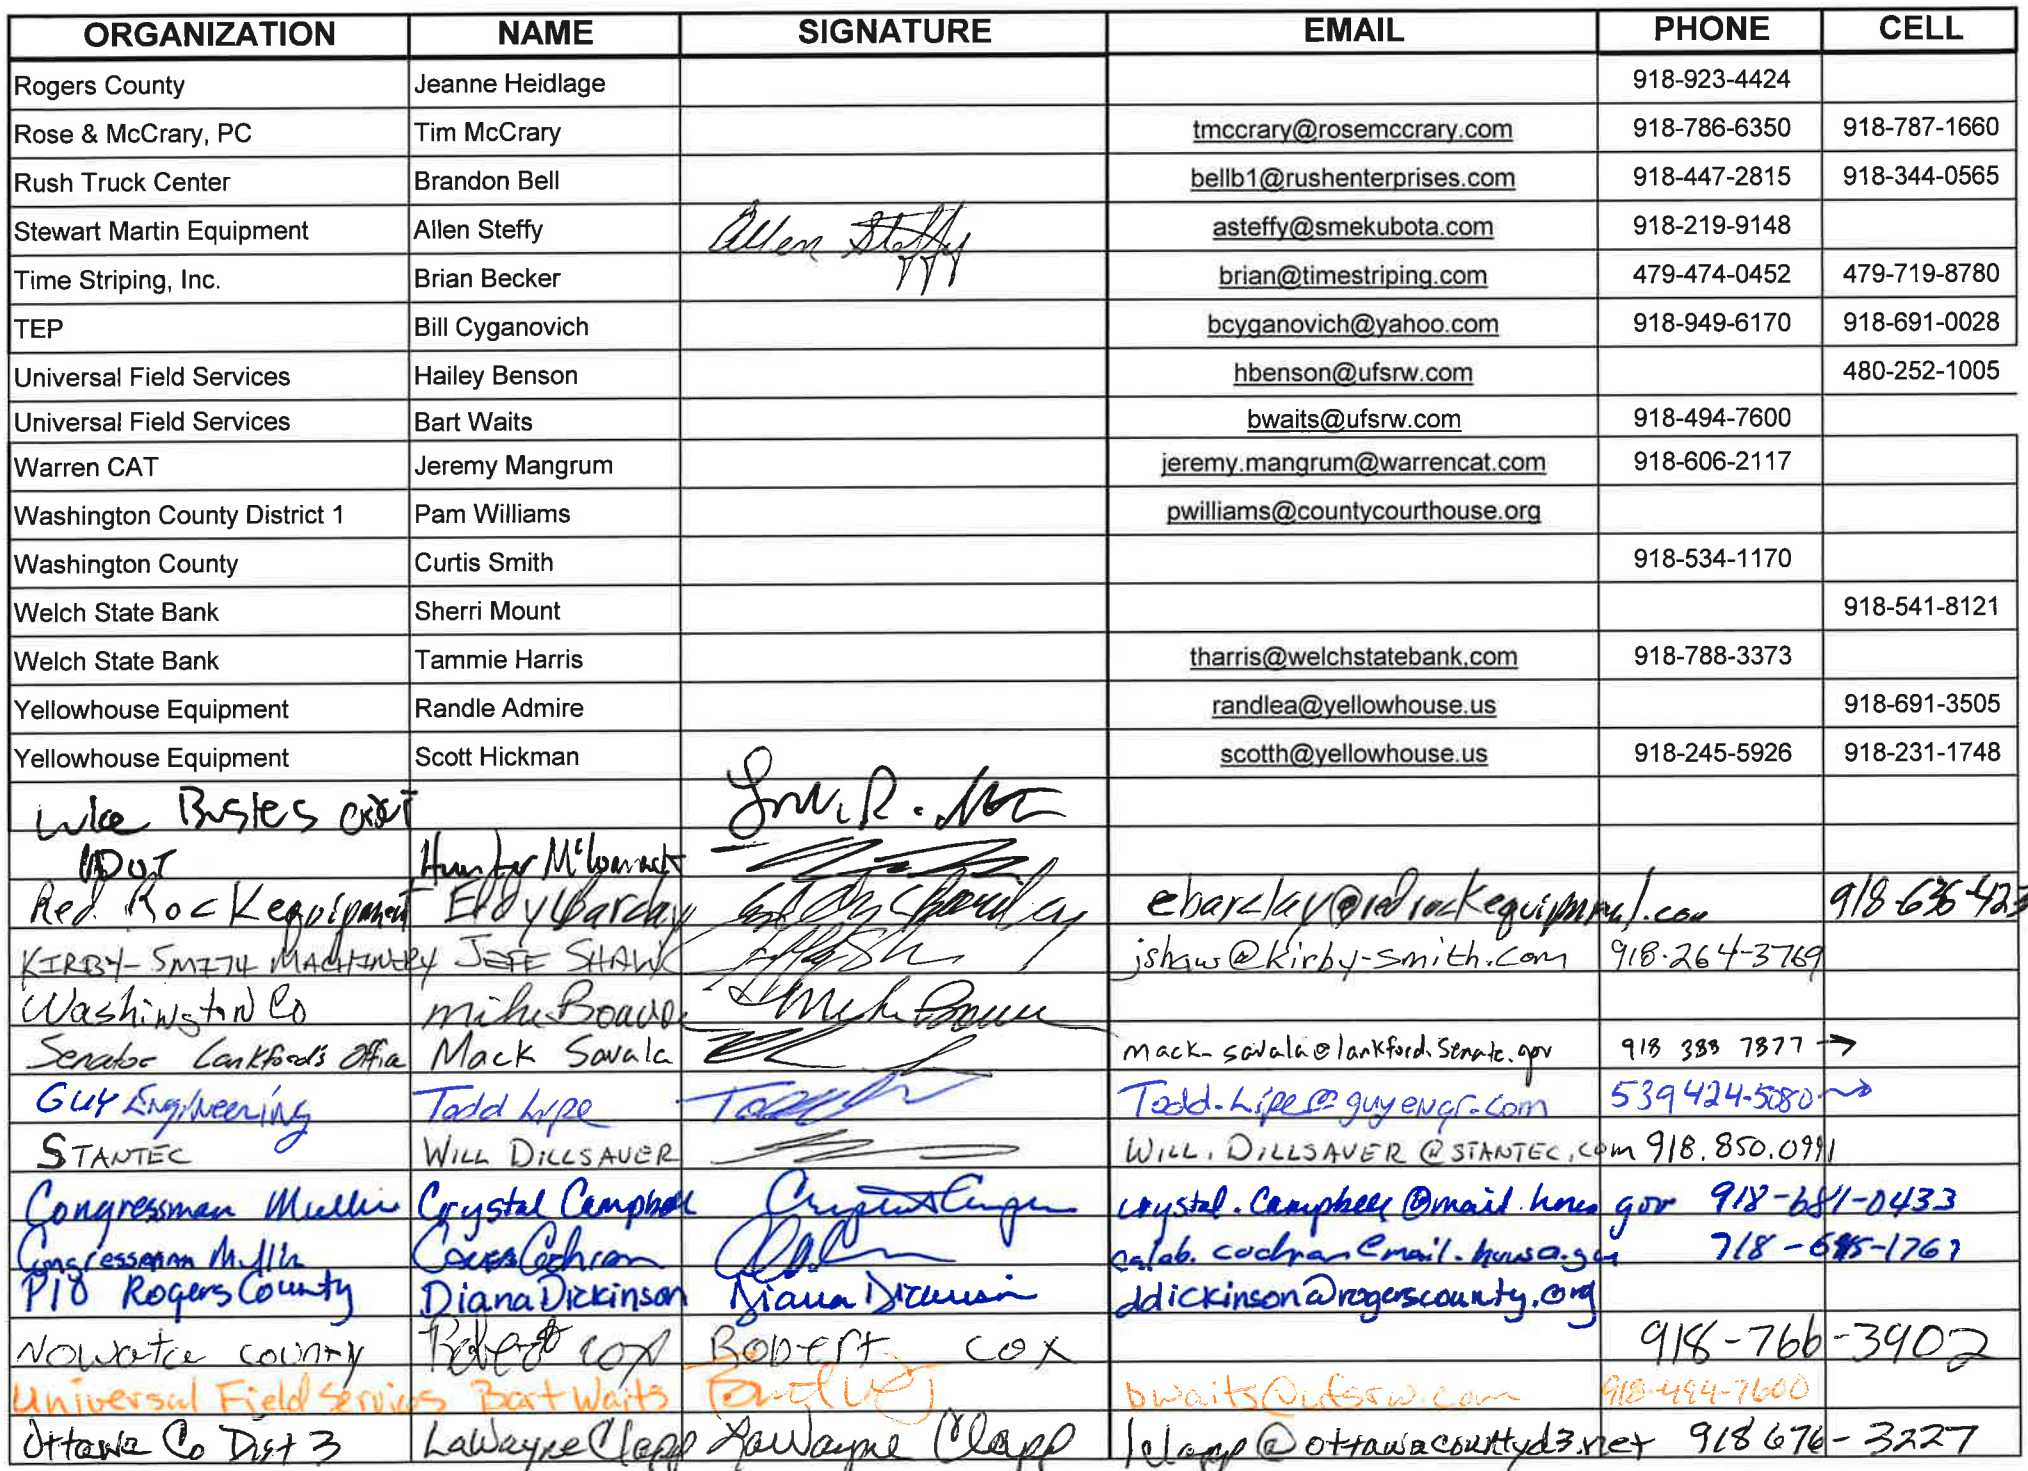 ORGANIZATION NAME SIGNATURE EMAIL PHONE CELL
Rogers County Jeanne Heidlage 918-923-4424
Rose & McCrary, PC Tim McCrary tmccrary@rosemccrary.com 918-786-6350 918-787-1660
Rush Truck Center Brandon Bell bellb1@rushenterprises.com 918-447-2815 918-344-0565
Stewart Martin Equipment Allen Steffy Allen Steffy asteffy@smekubota.com 918-219-9148
Time Striping, Inc. Brian Becker brian@timestriping.com 479-474-0452 479-719-8780
TEP Bill Cyganovich bcyganovich@yahoo.com 918-949-6170 918-691-0028
Universal Field Services Hailey Benson hbenson@ufsrw.com 480-252-1005
Universal Field Services Bart Waits bwaits@ufsrw.com 918-494-7600
Warren CAT Jeremy Mangrum jeremy.mangrum@warrencat.com 918-606-2117
Washington County District 1 Pam Williams pwilliams@countycourthouse.org
Washington County Curtis Smith 918-534-1170
Welch State Bank Sherri Mount 918-541-8121
Welch State Bank Tammie Harris tharris@welchstatebank.com 918-788-3373
Yellowhouse Equipment Randle Admire randlea@yellowhouse.us 918-691-3505
Yellowhouse Equipment Scott Hickman scotth@yellowhouse.us 918-245-5926 918-231-1748
Luke
Hunter
Red Rock equipment Eddy Barclay ebarclay@redrockequipment.com 918-636-423
KIRBY-SMITH MACHINERY JEFF SHAW jshaw@kirby-smith.com 918-264-3769
Washington Co mike
Senator Lankford's Office Mack Savala mack_savala@lankford.senate.gov 918 383 7877 →
GUY Engineering Todd Lipe Todd.Lipe@guyengr.com 539 424-5080 →
STANTEC WILL DILLSAVER WILL.DILLSAVER@STANTEC.com 918.850.0991
Congressman Mullin Crystal Campbell crystal.campbell@mail.house.gov 918-681-0433
Congressman Mullin Cochran caleb.cochran@mail.house.gov
PIO Rogers County Diana Dickinson Diana Dickinson ddickinson@rogerscounty.org
Nowata county Robert cox Robert cox 918-766-3902
Universal Field Services Bart Waits bwaits@ufsrw.com 918-494-7600
Ottawa Co Dist 3 LaWayne Clapp LaWayne Clapp lclapp@ottawacountyd3.net 918 676-3227